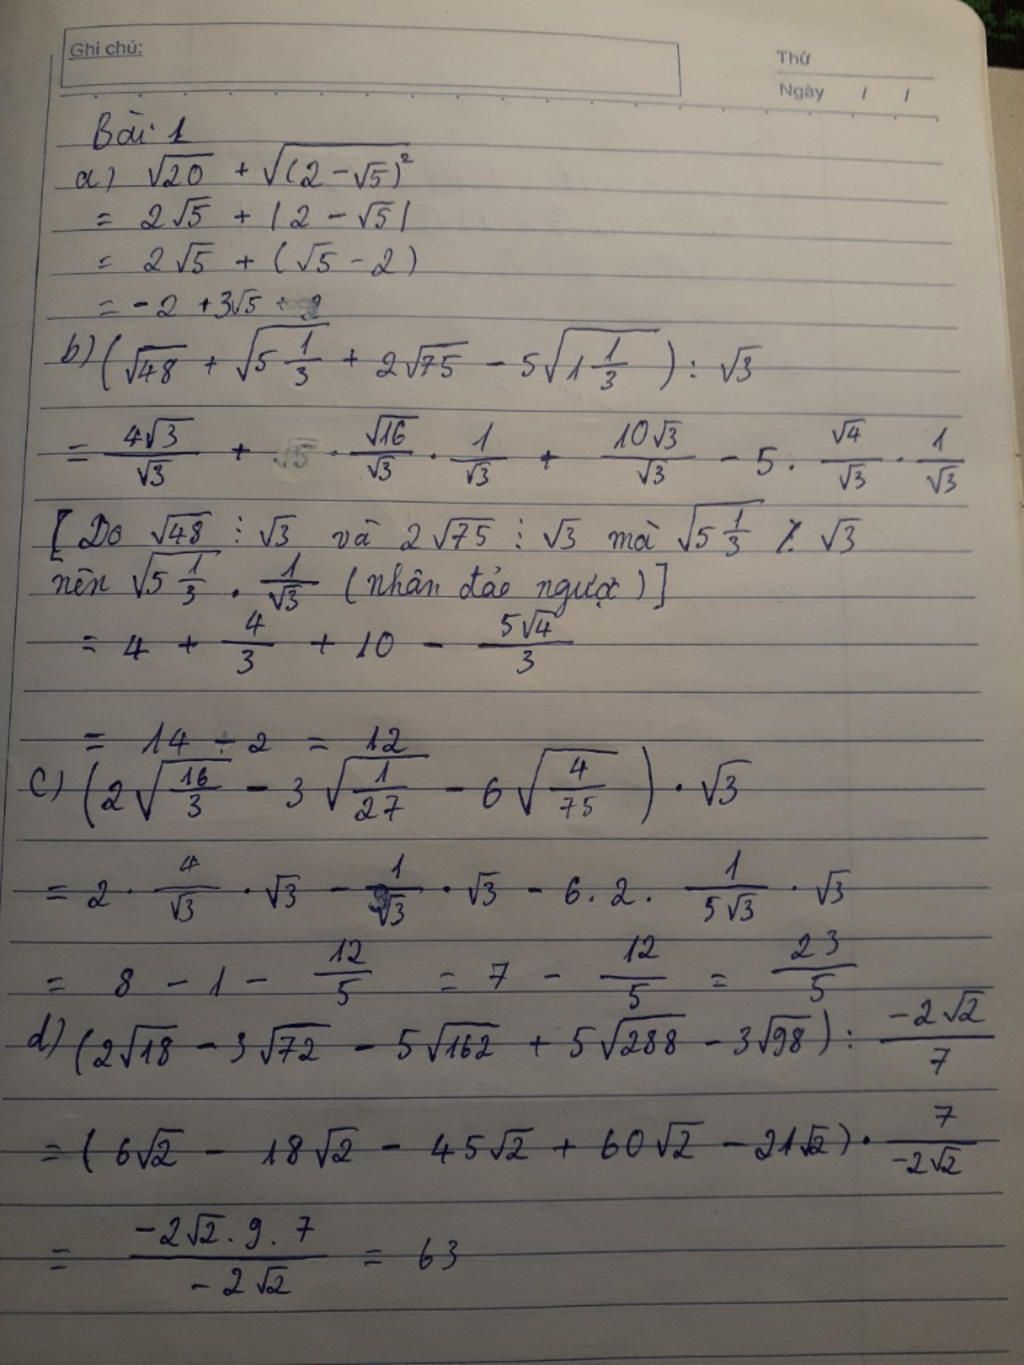 Ghi chú:
Thứ
Ngày / /
Bài 1
a) √20 + √(2 - √5)²
= 2√5 + |2 - √5|
= 2√5 + (√5 - 2)
= -2 + 3√5
b) (√48 + √(5 1/3) + 2√75 - 5√(1 1/3)) : √3
= 4√3/√3 + √16/√3 · 1/√3 + 10√3/√3 - 5 · √4/√3 · 1/√3
[Do √48 ⋮ √3 và 2√75 ⋮ √3 mà √(5 1/3) ⋮̸ √3
nên √(5 1/3) · 1/√3 (nhân đảo ngược)]
= 4 + 4/3 + 10 - 5√4/3
= 14 - 2 = 12
c) (2√(16/3) - 3√(1/27) - 6√(4/75)) · √3
= 2 · 4/√3 · √3 - 1/√3 · √3 - 6. 2. 1/5√3 · √3
= 8 - 1 - 12/5 = 7 - 12/5 = 23/5
d) (2√18 - 3√72 - 5√162 + 5√288 - 3√98) : -2√2/7
= (6√2 - 18√2 - 45√2 + 60√2 - 21√2) · 7/-2√2
= -2√2. 9. 7/-2√2 = 63